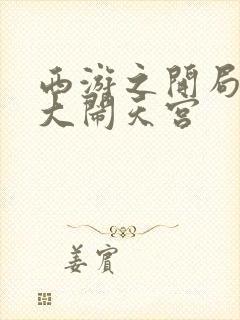 西游之开局
大闹天宫
姜宾